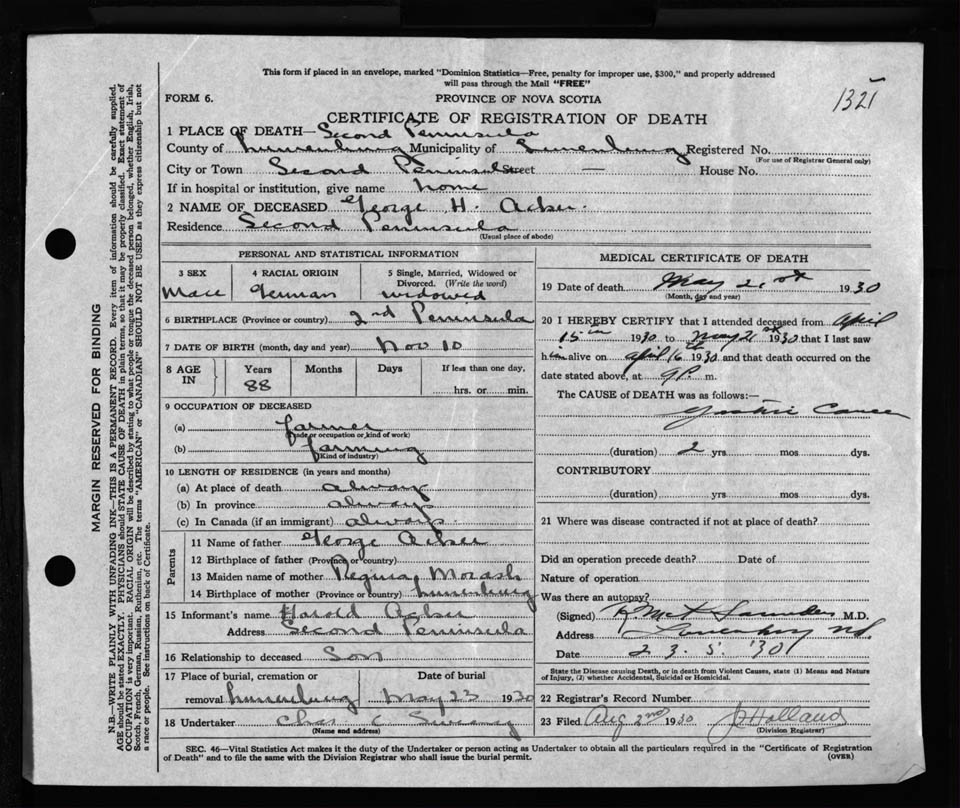 This form if placed in an envelope, marked "Dominion Statistics—Free, penalty for improper use, $300," and properly addressed
will pass through the Mail "FREE"
1321
FORM 6.
PROVINCE OF NOVA SCOTIA
CERTIFICATE OF REGISTRATION OF DEATH
1 PLACE OF DEATH— Second Peninsula
County of Lunenburg Municipality of Lunenburg Registered No.
(For use of Registrar General only)
City or Town Second Peninsula Street — House No.
If in hospital or institution, give name home
2 NAME OF DECEASED George H. Acker.
Residence Second Peninsula
(Usual place of abode)
PERSONAL AND STATISTICAL INFORMATION
3 SEX
Male
4 RACIAL ORIGIN
German
5 Single, Married, Widowed or
Divorced. (Write the word)
widowed
6 BIRTHPLACE (Province or country) 2nd Peninsula
7 DATE OF BIRTH (month, day and year) Nov 10
8 AGE IN
Years Months Days If less than one day,
88 hrs. or min.
9 OCCUPATION OF DECEASED
(a) farmer
(Trade or occupation or kind of work)
(b) farming
(Kind of industry)
10 LENGTH OF RESIDENCE (in years and months)
(a) At place of death always
(b) In province always
(c) In Canada (if an immigrant) always
Parents
11 Name of father George Acker
12 Birthplace of father (Province or country)
13 Maiden name of mother Regina Morash
14 Birthplace of mother (Province or country) Lunenburg
15 Informant's name Harold Acker
Address Second Peninsula
16 Relationship to deceased Son
17 Place of burial, cremation or Date of burial
removal Lunenburg May 23 1930
18 Undertaker Chas C
(Name and address)
MEDICAL CERTIFICATE OF DEATH
19 Date of death May 21st 1930
(Month, day and year)
20 I HEREBY CERTIFY that I attended deceased from April
15th 1930 to May 21st 1930 that I last saw
him alive on April 16th 1930 and that death occurred on the
date stated above, at 9 P. m.
The CAUSE of DEATH was as follows:—
Gastric Cancer
(duration) 2 yrs mos dys.
CONTRIBUTORY
(duration) yrs mos dys.
21 Where was disease contracted if not at place of death?
Did an operation precede death? Date of
Nature of operation
Was there an autopsy?
(Signed) Saunders M.D.
Address Lunenburg NS.
Date 23. 5. '30
State the Disease causing Death, or in death from Violent Causes, state (1) Means and Nature
of Injury, (2) whether Accidental, Suicidal or Homicidal.
22 Registrar's Record Number
23 Filed Aug 2nd 1930 Holland
(Division Registrar)
SEC. 46—Vital Statistics Act makes it the duty of the Undertaker or person acting as Undertaker to obtain all the particulars required in the "Certificate of Registration
of Death" and to file the same with the Division Registrar who shall issue the burial permit.
(OVER)
MARGIN RESERVED FOR BINDING
N.B.—WRITE PLAINLY WITH UNFADING INK—THIS IS A PERMANENT RECORD. Every item of information should be carefully supplied.
AGE should be stated EXACTLY. PHYSICIANS should STATE CAUSE OF DEATH in plain terms, so that it may be properly classified. Exact statement of
OCCUPATION is very important. RACIAL ORIGIN will be described by stating to what people or tongue the deceased person belonged, whether English, Irish,
Scotch, French, German, Russian, Ruthenian, etc. The terms "AMERICAN" or "CANADIAN" SHOULD NOT BE USED as they express citizenship but not
a race or people. See instructions on back of Certificate.